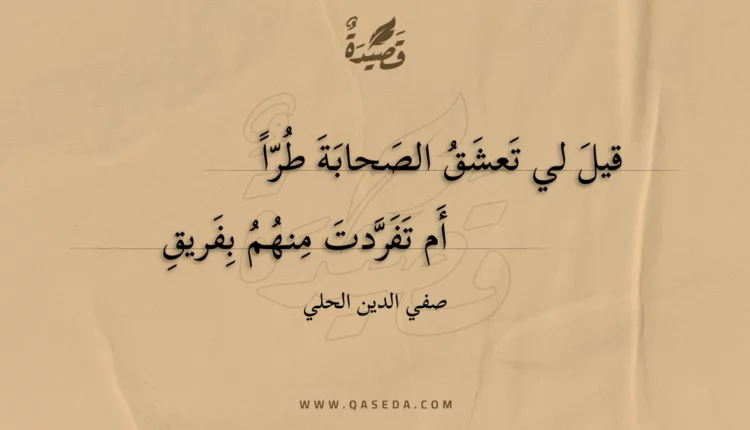 قَصِيدَةٌ
قيلَ لي تَعشَقُ الصَحابَةَ طُرّاً
أَم تَفَرَّدتَ مِنهُمُ بِفَريقِ
صفي الدين الحلي
WWW.QASEDA.COM